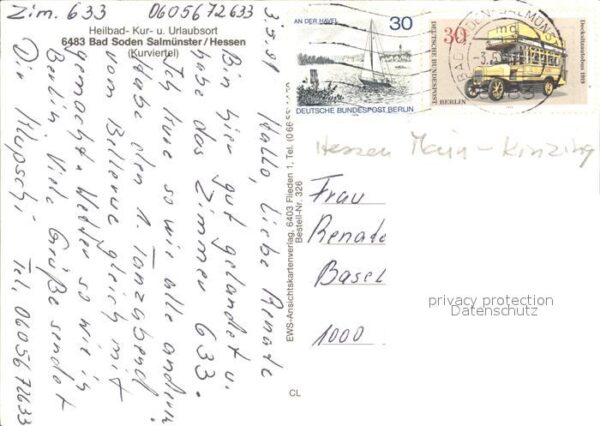 Zim. 633 06056 72633
Heilbad- Kur- u. Urlaubsort
6483 Bad Soden Salmünster/Hessen
(Kurviertel)
3.5.81
Hallo, liebe Renate
Bin hier gut gelandet u.
habe das Zimmer 633.
Ich kure so wie alle andern
Habe den 1. Tanzabend
vom Bellevue gleich mit
gemacht. Wetter so wie in
Berlin Viele Grüße sendet
Die Tel. 06056 72633
EWS-Ansichtskartenverlag, 6403 Flieden 1, Tel. (0 66 55)
Bestell-Nr. 326
CL
AN DER HAVEL
30
DEUTSCHE BUNDESPOST BERLIN
30
DEUTSCHE BUNDESPOST
BERLIN
Deckstandomnibus 1919
BAD SODEN-SALMÜNSTER
Hessen Main-Kinzig
Frau
Renate
Basel
1000
privacy protection
Datenschutz